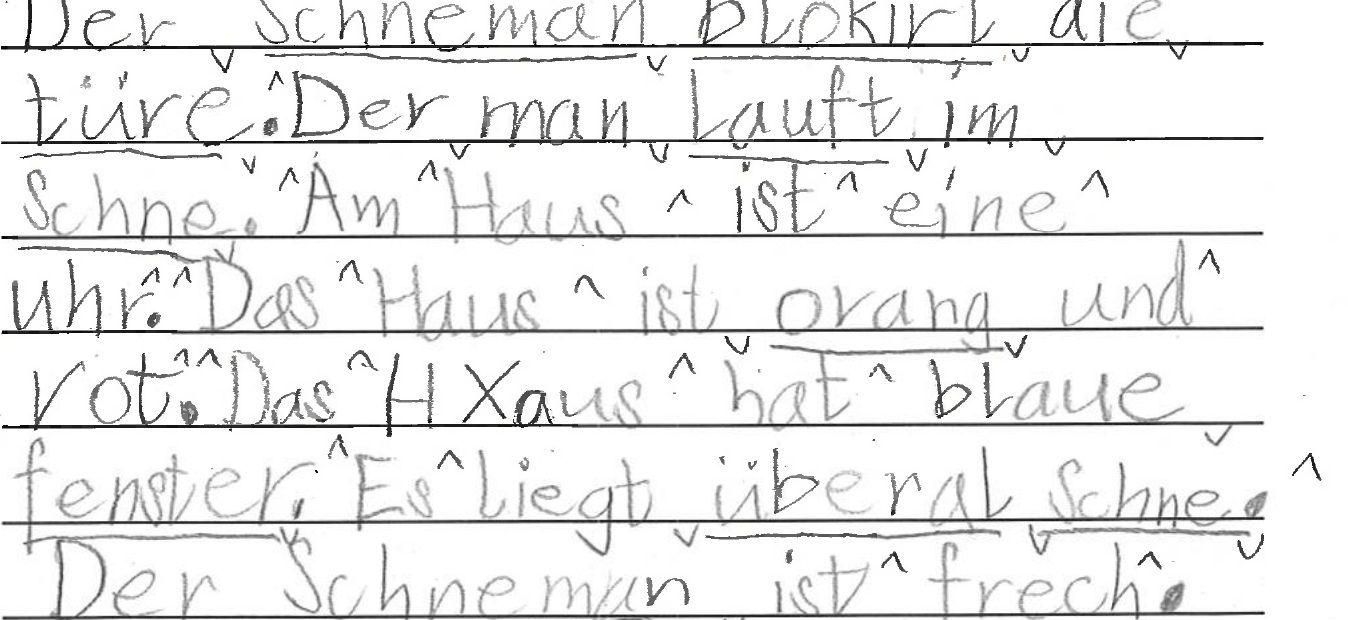 Der Schneman blokirt die
türe. Der man lauft im
Schne. Am Haus ist eine
uhr. Das Haus ist orang und
rot. Das H Xaus hat blaue
fenster. Es liegt überal Schne.
Der Schneman ist frech.